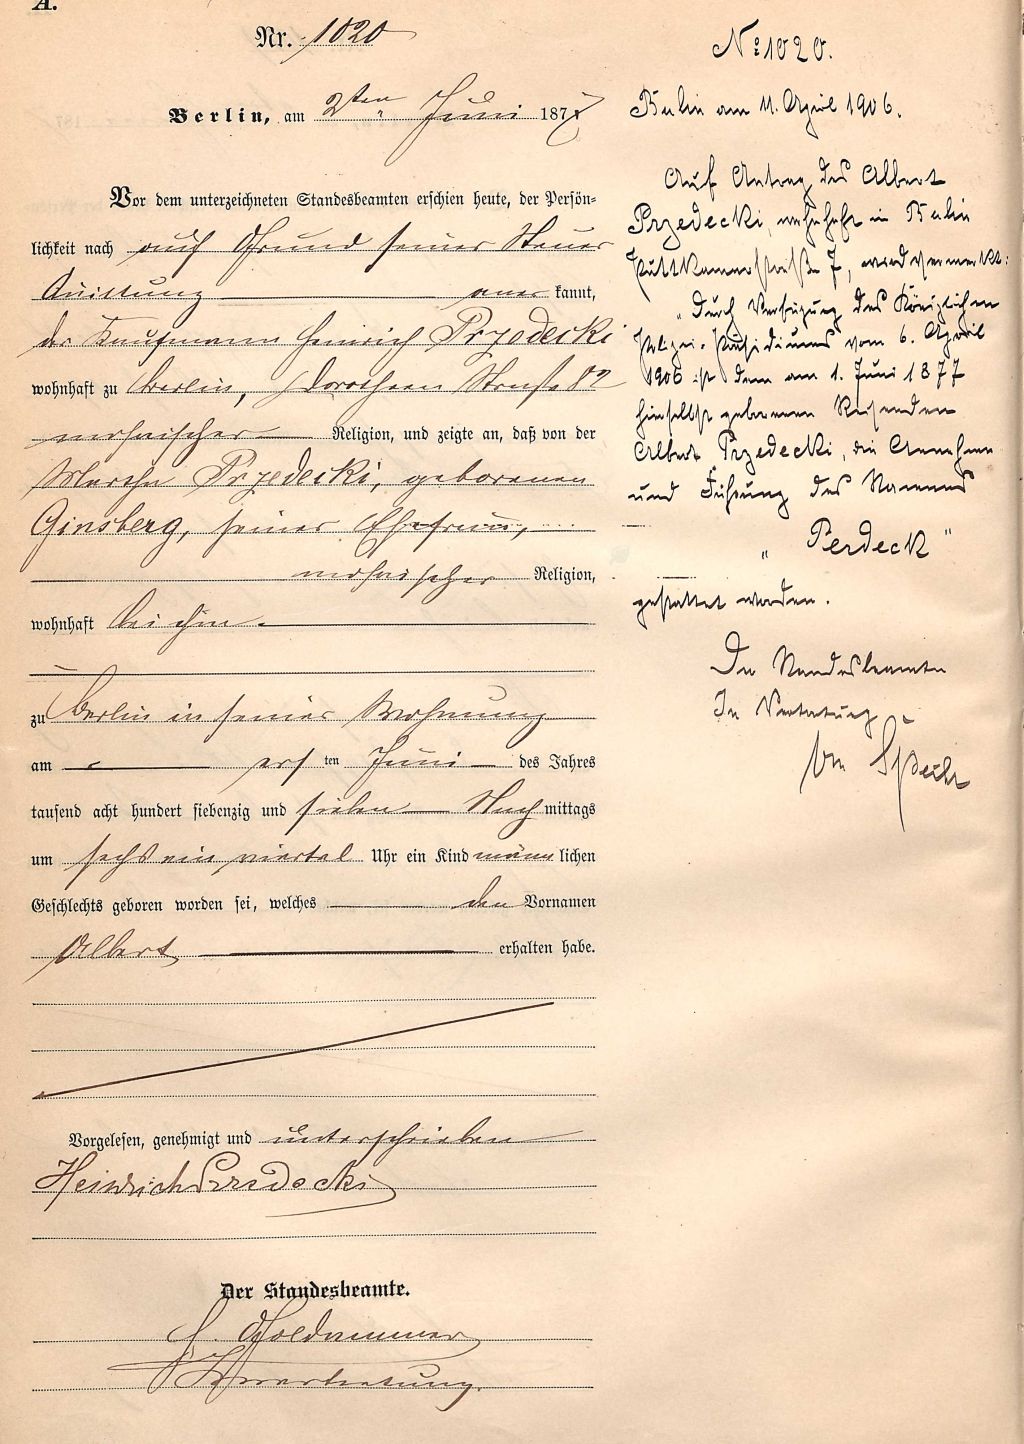 A.
Nr. 1020
Berlin, am 2ten Juni 1877
Vor dem unterzeichneten Standesbeamten erschien heute, der Persön-
lichkeit nach auf Grund seiner Steuer
Quittung aner kannt,
der Kaufmann Heinrich Przedecki
wohnhaft zu Berlin, Dorotheen Straße
mosaischer Religion, und zeigte an, daß von der
Martha Przedecki, geborenen
Ginsberg, seiner Ehefrau,
mosaischer Religion,
wohnhaft bei ihm
zu Berlin in seiner Wohnung
am ersten Juni des Jahres
tausend acht hundert siebenzig und sieben Nachmittags
um sechs ein viertel Uhr ein Kind männlichen
Geschlechts geboren worden sei, welches den Vornamen
Albert erhalten habe.
Vorgelesen, genehmigt und unterschrieben
Heinrich Przedecki
Der Standesbeamte.
Goldammer
In Vertretung.
No 1020.
Berlin am 11. April 1906.
Auf Antrag des Albert
Przedecki, wohnhaft in Berlin
Puttkamerstraße 7, wird vermerkt:
„Durch Verfügung des Königlichen
Polizei-Präsidiums vom 6. April
1906 ist dem am 1. Juni 1877
hierselbst geborenen Reisenden
Albert Przedecki, die Annahme
und Führung des Namens
„Perdeck"
gestattet worden.
Der Standesbeamte
In Vertretung